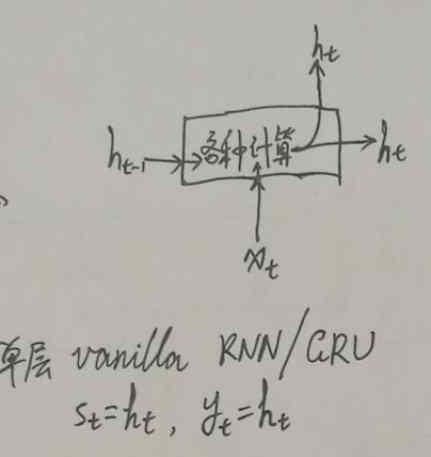 h_t
h_{t-1} 各种计算 h_t
x_t
单层 vanilla RNN/GRU
s_t=h_t, y_t=h_t